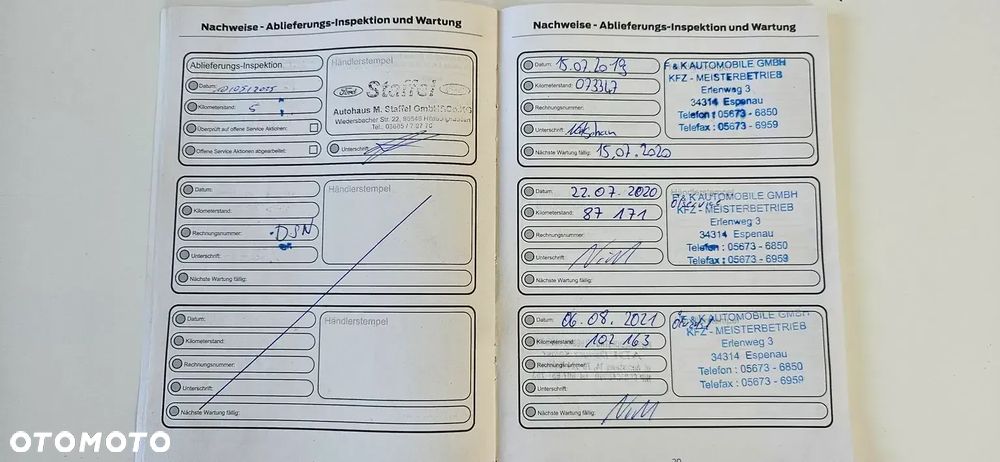 Nachweise - Ablieferungs-Inspektion und Wartung
Ablieferungs-Inspektion
Händlerstempel
Datum:
Kilometerstand: 5
Überprüft auf offene Service Aktionen:
Offene Service Aktionen abgearbeitet:
Unterschrift:
Ford Staffel Ford
Autohaus M. Staffel GmbH
Wiedersbacher Str. 22
Tel.:
Datum:
Händlerstempel
Kilometerstand:
Rechnungsnummer: DSN
Unterschrift:
Nächste Wartung fällig:
Datum:
Händlerstempel
Kilometerstand:
Rechnungsnummer:
Unterschrift:
Nächste Wartung fällig:
Nachweise - Ablieferungs-Inspektion und Wartung
Datum: 15.07.2019
Kilometerstand: 073347
Rechnungsnummer:
Unterschrift:
Nächste Wartung fällig: 15.07.2020
F & K AUTOMOBILE GMBH
KFZ - MEISTERBETRIEB
Erlenweg 3
34314 Espenau
Telefon : 05673 - 6850
Telefax : 05673 - 6959
Datum: 22.07.2020
Kilometerstand: 87 171
Rechnungsnummer:
Unterschrift:
Nächste Wartung fällig:
Händlerstempel
F & K AUTOMOBILE GMBH
KFZ - MEISTERBETRIEB
Erlenweg 3
34314 Espenau
Telefon : 05673 - 6850
Telefax : 05673 - 6959
Datum: 06.08.2021
Kilometerstand: 102 163
Rechnungsnummer:
Unterschrift:
Nächste Wartung fällig:
F & K AUTOMOBILE GMBH
KFZ - MEISTERBETRIEB
Erlenweg 3
34314 Espenau
Telefon : 05673 - 6850
Telefax : 05673 - 6959
OTOMOTO